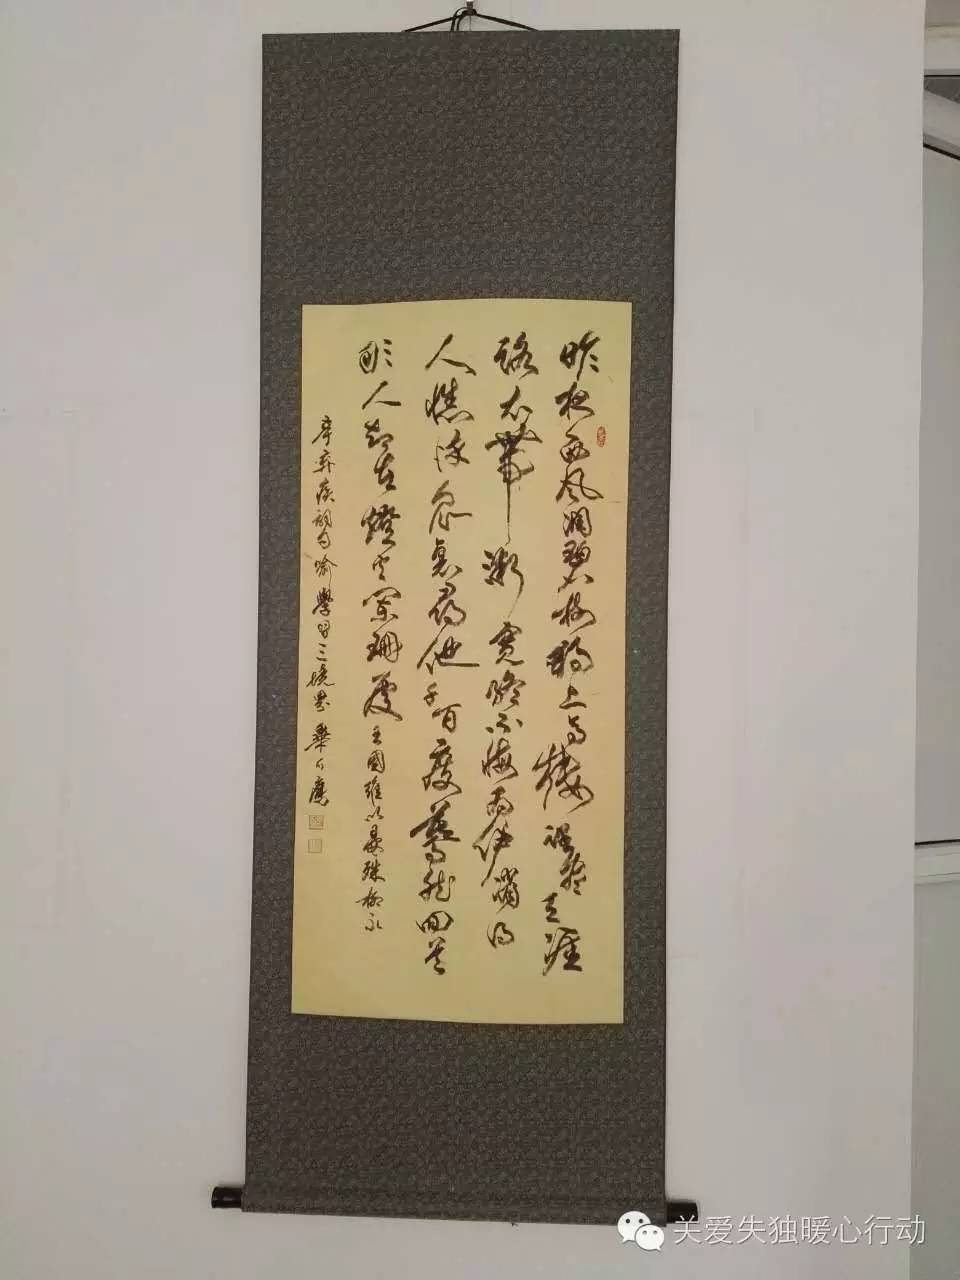 昨夜西风凋碧树独上高楼望尽天涯
路衣带渐宽终不悔为伊消得
人憔悴众里寻他千百度蓦然回首
那人却在灯火阑珊处王國维以晏殊柳永
辛弃疾词句喻學習三境界
关爱失独暖心行动